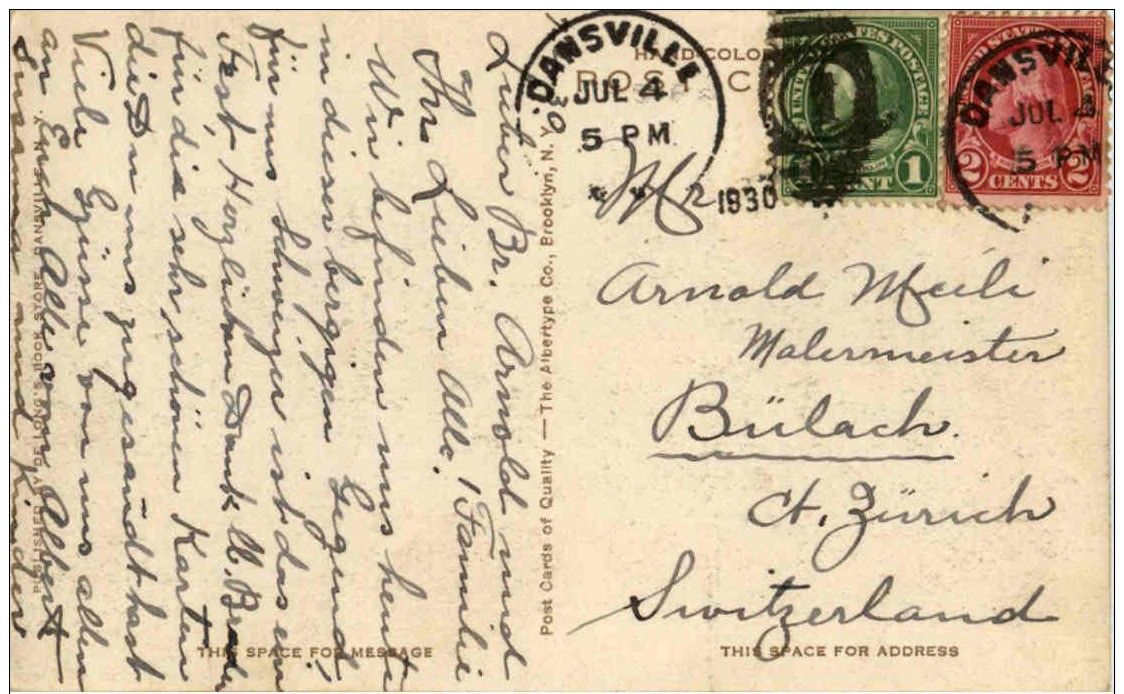 HAND COLORED
POST CARD
DANSVILLE
JUL 4
5 PM
1930
DANSVILLE
JUL 4
5 PM
UNITED STATES POSTAGE
1 CENT 1
UNITED STATES POSTAGE
2 CENTS 2
Mr
Arnold Meili
Malermeister
Bülach.
Ct. Zürich
Switzerland
THIS SPACE FOR ADDRESS
Post Cards of Quality — The Albertype Co., Brooklyn, N. Y.
Lieber Br. Arnold und
Ihr Lieben Alle. Familie
Wir befinden uns heute
in dieser bergigen Gegend,
für uns Schweizer ist das ein
Fest Herzlichen Dank l. Bruder
für die sehr schönen Karten
die Du uns zugesandt hast
Viele Grüsse von uns allen
an Euch Alle von Albert
und Kinder
THIS SPACE FOR MESSAGE
PUBLISHED BY DE LONG'S BOOK STORE, DANSVILLE, N. Y.